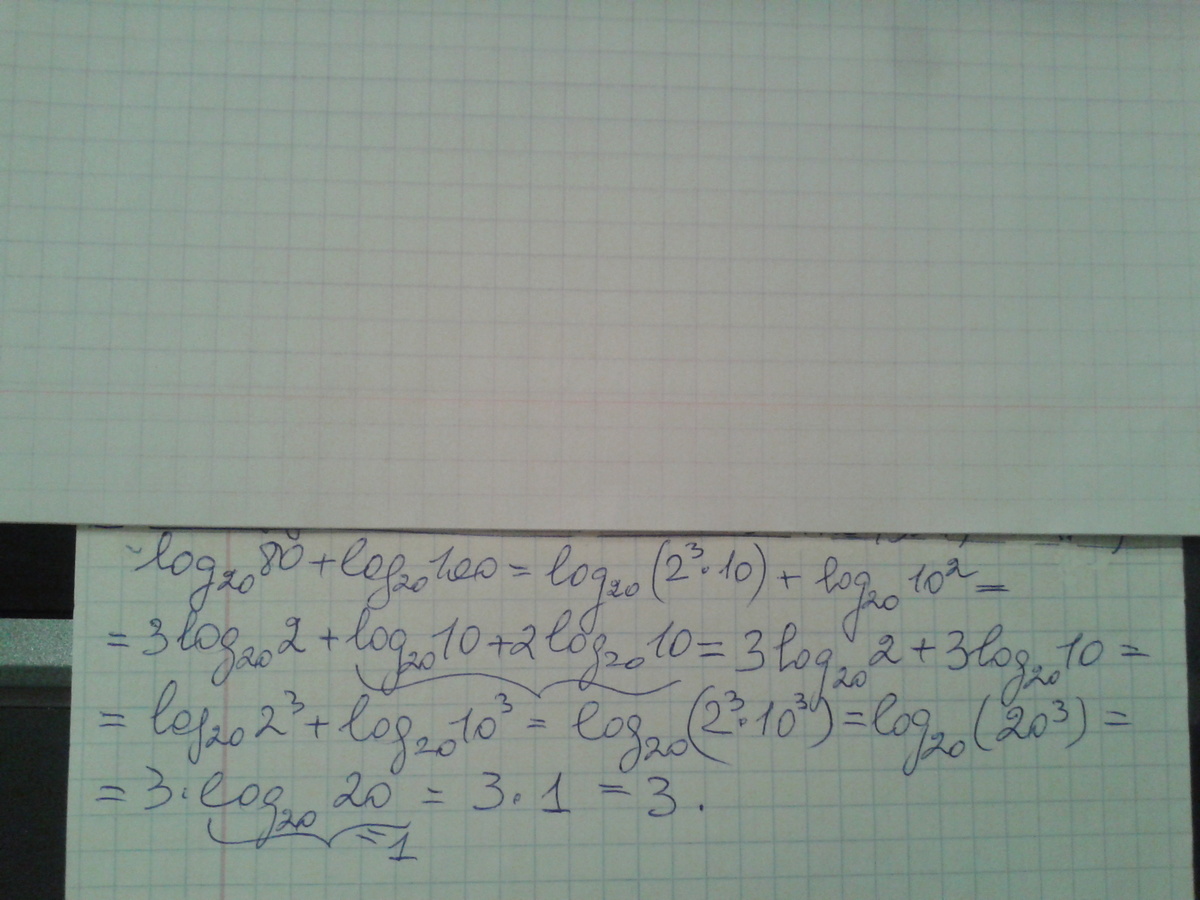 log₂₀80 + log₂₀100 = log₂₀(2³·10) + log₂₀10² =
= 3log₂₀2 + log₂₀10 + 2log₂₀10 = 3log₂₀2 + 3log₂₀10 =
= log₂₀2³ + log₂₀10³ = log₂₀(2³·10³) = log₂₀(20³) =
= 3·log₂₀20 = 3·1 = 3.
=1